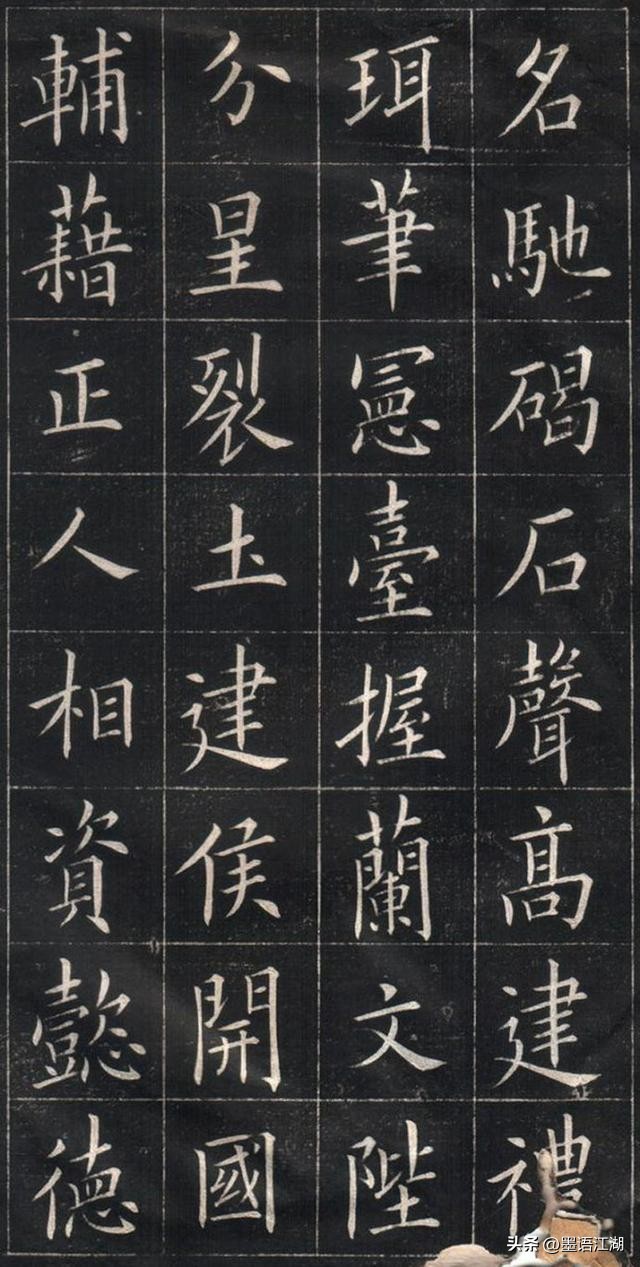 名馳碣石聲高建禮
珥筆憲臺握蘭文陛
分星裂土建侯開國
輔藉正人相資懿德
头条 @墨语江湖